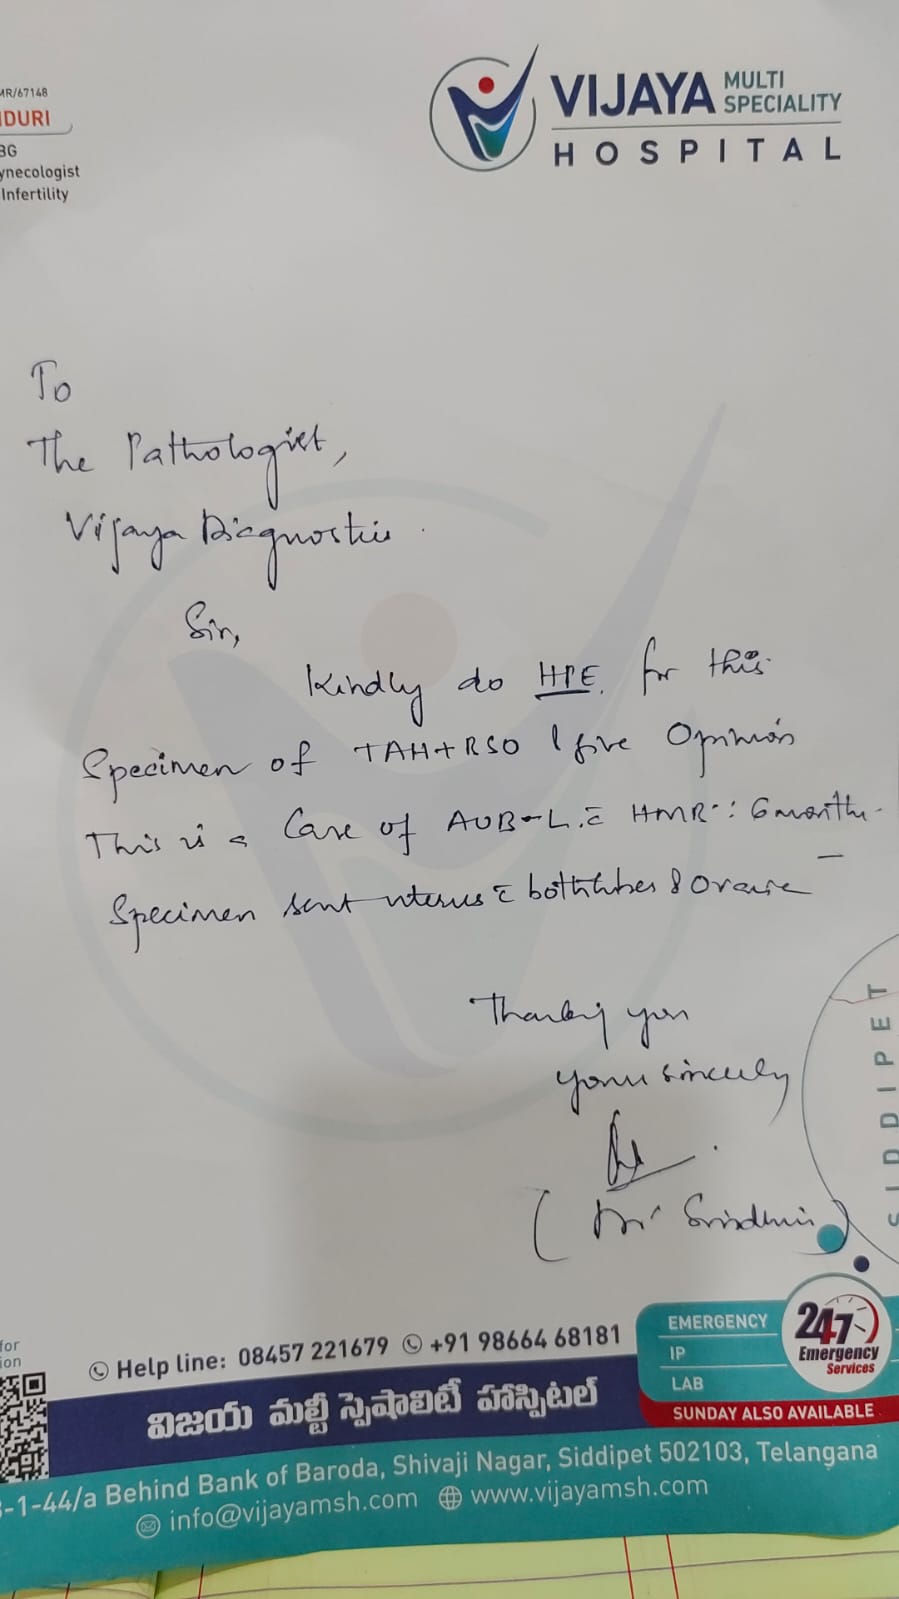 MR/67148
DURI
BG
ynecologist
Infertility
VIJAYA MULTI SPECIALITY
HOSPITAL
To
The Pathologist,
Vijaya Diagnostics.
Sir,
Kindly do HPE. for this
Specimen of TAH+RSO & give Opinion
This is a Case of AUB-L. c̄ HMB: 6 months.
Specimen sent uterus c̄ both tubes & Ovarie
Thanking you
yours sincerely
(Dr
SIDDIPET
for
ion
Help line: 08457 221679 +91 98664 68181
EMERGENCY
IP
LAB
24/7
Emergency
Services
SUNDAY ALSO AVAILABLE
విజయ మల్టీ స్పెషాలిటీ హాస్పిటల్
-1-44/a Behind Bank of Baroda, Shivaji Nagar, Siddipet 502103, Telangana
info@vijayamsh.com www.vijayamsh.com